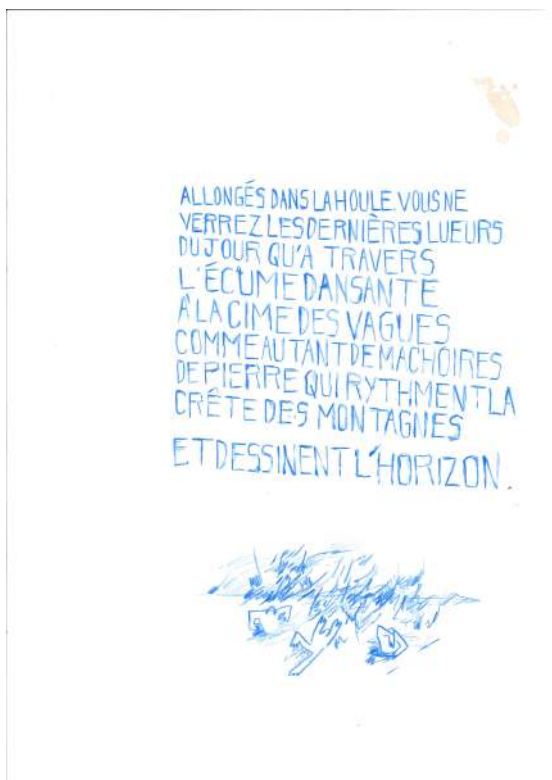 ALLONGÉS DANS LA HOULE. VOUS NE
VERREZ LES DERNIÈRES LUEURS
DU JOUR QU'A TRAVERS
L'ÉCUME DANSANTE
À LA CIME DES VAGUES
COMME AUTANT DE MACHOIRES
DE PIERRE QUI RYTHMENT LA
CRÊTE DES MONTAGNES
ET DESSINENT L'HORIZON.